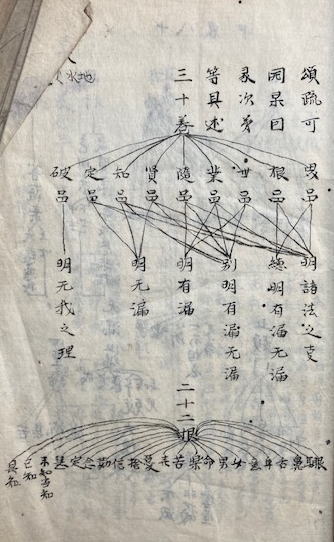 頌疏可
因果因
次第
等具述
三十卷
界品
根品
世品
業品
隨品
賢品
知品
定品
破品
明諸法之
總明有漏无漏
别明有漏无漏
明有漏
明无漏
明无我之理
二十二根
眼
耳
鼻
舌
身
意
女
男
命
樂
苦
喜
憂
捨
信
勤
念
定
慧
未知當知
已知
具知
水地